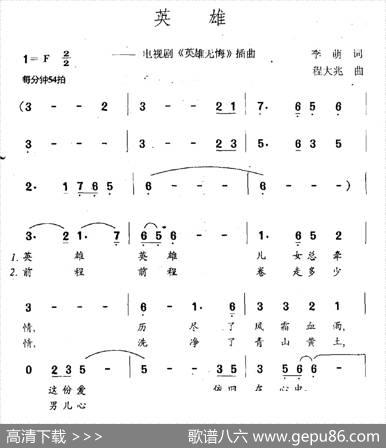 英 雄
1=F 2/2
—— 电视剧《英雄无悔》插曲
李 萌 词
每分钟54拍
程大兆 曲
(3 - - 2 | 3 - - 2 1 | 7. 6 5 6 |
3 - - 2 | 3 - - 2 3 | 5. 6 5 3 |
2. 1 7 6 5 | 6 - - - | 6 - - -)
3. 2 1. 7 | 6 5 6 - - | 1. 6 5 2 |
1. 英 雄 英 雄 儿 女 总 牵
2. 前 程 前 程 卷 走 多 少
3 - - - | 6 1. 6 | 3 3 2 1 |
情, 历 尽 了 风 霜 血 雨,
情, 洗 净 了 青 山 黄 土,
0 2 3 5 | 5 - - - | 3 5 6 6
这份爱
男儿心
高清下载 >>>
歌谱八六 www.gepu86.com